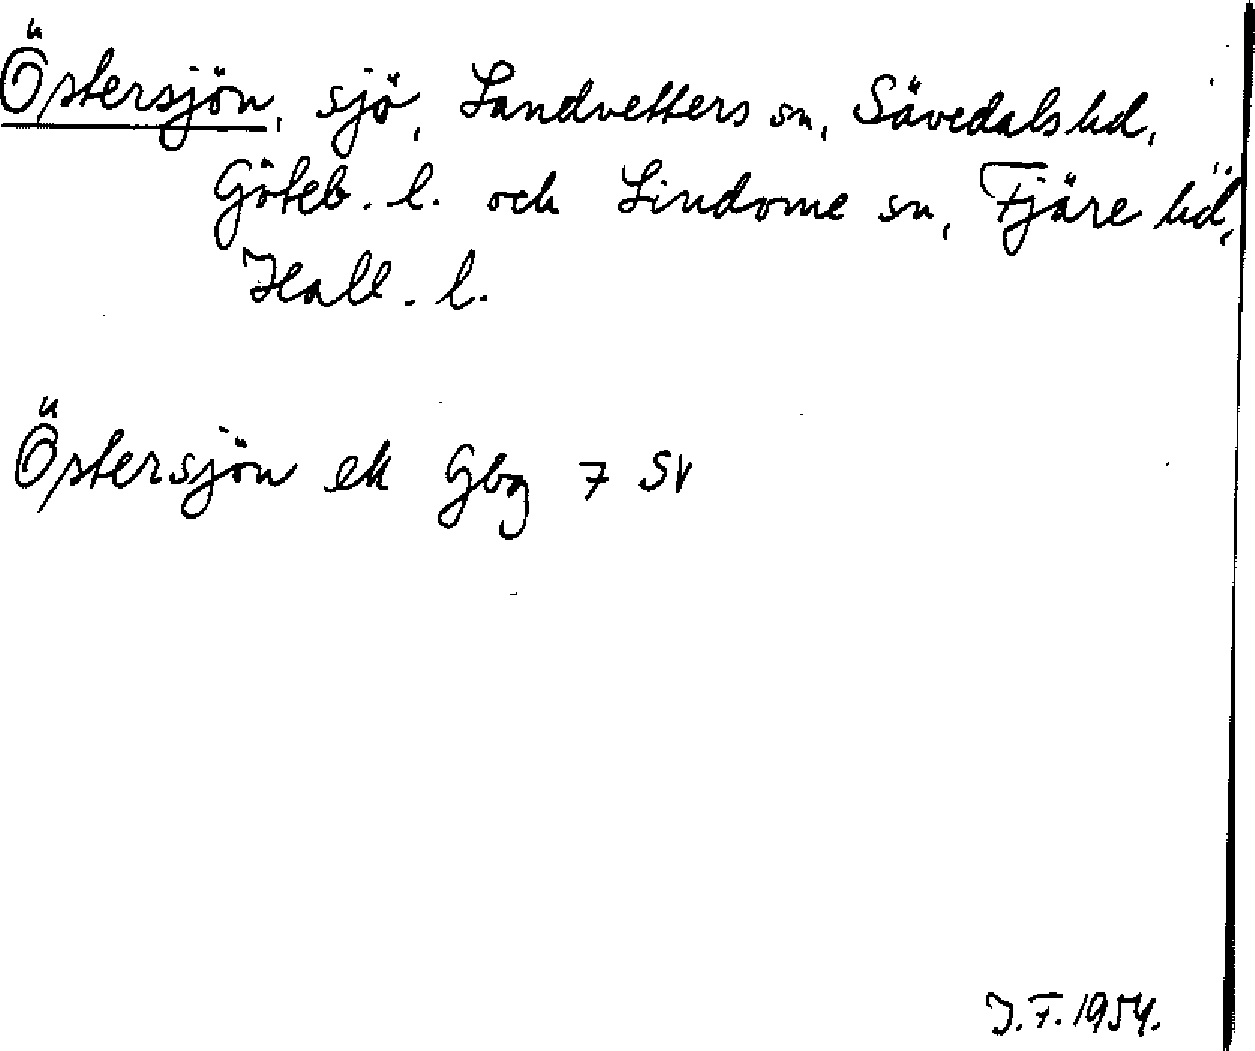 Östersjön, sjö, Landvetters sn, Sävedals hd,
Göteb. l. och Lindome sn, Fjäre hd,
Hall. l.
Östersjön ek Gbg 7 SV
J.F. 1954.